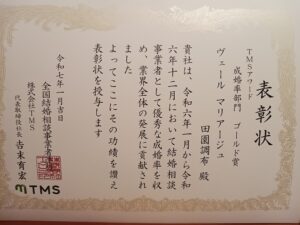 表彰状
TMSアワード
成婚率部門 ゴールド賞
ヴェール マリアージュ
田園調布 殿
貴社は、令和六年一月から令和
六年十二月において結婚相談
事業者として優秀な成婚率を収
め、業界全体の発展に貢献され
ました
よってここにその功績を讃え
表彰状を授与します
令和七年一月吉日
全国結婚相談事業者連盟
株式会社TMS
代表取締役社長 吉末有宏
TMS